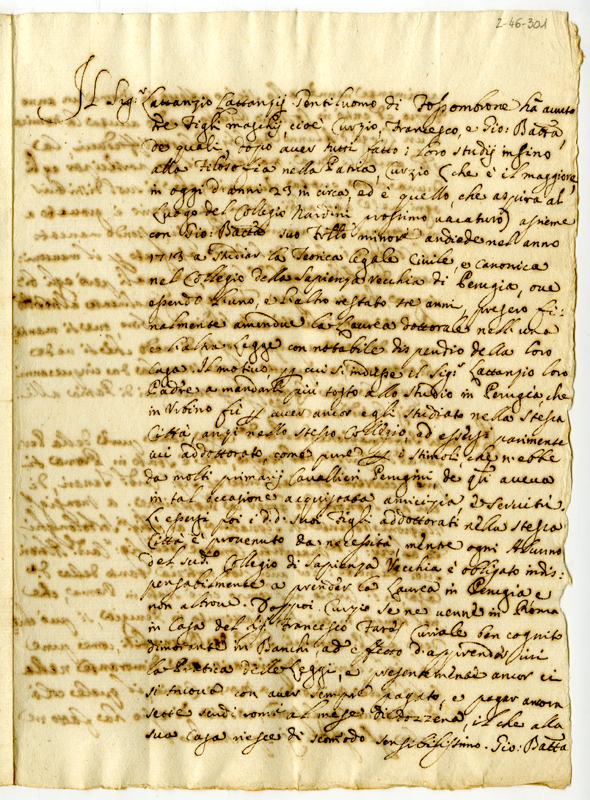 2-46-301
Il Sig.r Lattanzio Lattanzij Gentiluomo di Fossombrone hà avuto
tre figli maschij, cioè Curzio, Francesco, e Gio: Batta,
de quali, dopo aver tutti fatto i loro studij infino
alla Filosofia nella Patria, Curzio (che è il maggiore
in oggi d'anni 23 in circa, ed è quello, che aspira al
luogo del Collegio Nardini prossimo vacaturo) assieme
con Gio: Batta suo fratello minore andiede nell'anno
1713 a studiar la Teorica legale Civile, e Canonica
nel Collegio della Sapienza Vecchia di Perugia, ove
essendo l'uno, e l'altro restato tre anni, presero fi=
nalmente amendue la Laurea dottorale nell'una
e l'altra Legge con notabile dispendio della loro
Casa. Il motivo, per cui s'indusse il Sig.r Lattanzio loro
Padre a mandarli più tosto allo studio in Perugia, che
in Urbino fù per aver ancor egli studiato nella stessa
Città, anzi nello stesso Collegio, ed essersi parimente
ivi addottorato, come pure per i stimoli, che n'ebbe
da molti primarij Cavallieri Perugini, de quali aveva
in tal occasione acquistata amicizia, e servitù.
L'essersi poi i d.d. suoi figli addottorati nella stessa
Città è provenuto da necessità, mentre ogni Alunno
del sud.o Collegio di Sapienza Vecchia è obligato indis=
pensabilmente a prender la Laurea in Perugia e
non altrove. Doppoi Curzio se ne venne in Roma
in Casa del Sig.r Francesco Curiale ben cognito
dimorante in Banchi ad effetto d'apprender ivi
la Pratica delle Leggi, e presentemente ancor ci
si trova con aver sempre pagato, e pagar ancora
sette scudi romani al mese di dozzena, il che alla
sua Casa riesce di scomodo sensibilissimo. Gio: Batta